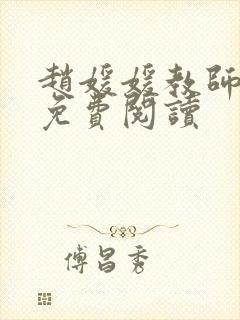 趙媛媛教師
免費閱讀
傅昌秀